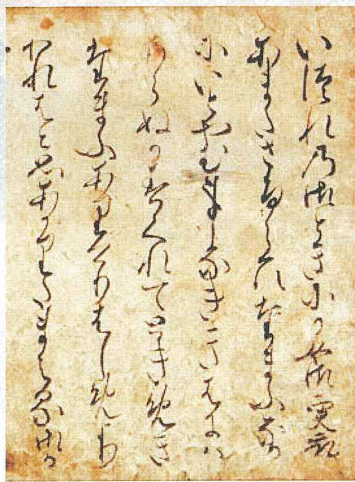 いつれの御ときにか女御更衣
あまたさふらひたまふなか
にいとやむことなきゝはには
あらぬかすくれてときめき
たまふありけりはしめより
われはと思あかりたまへる御か